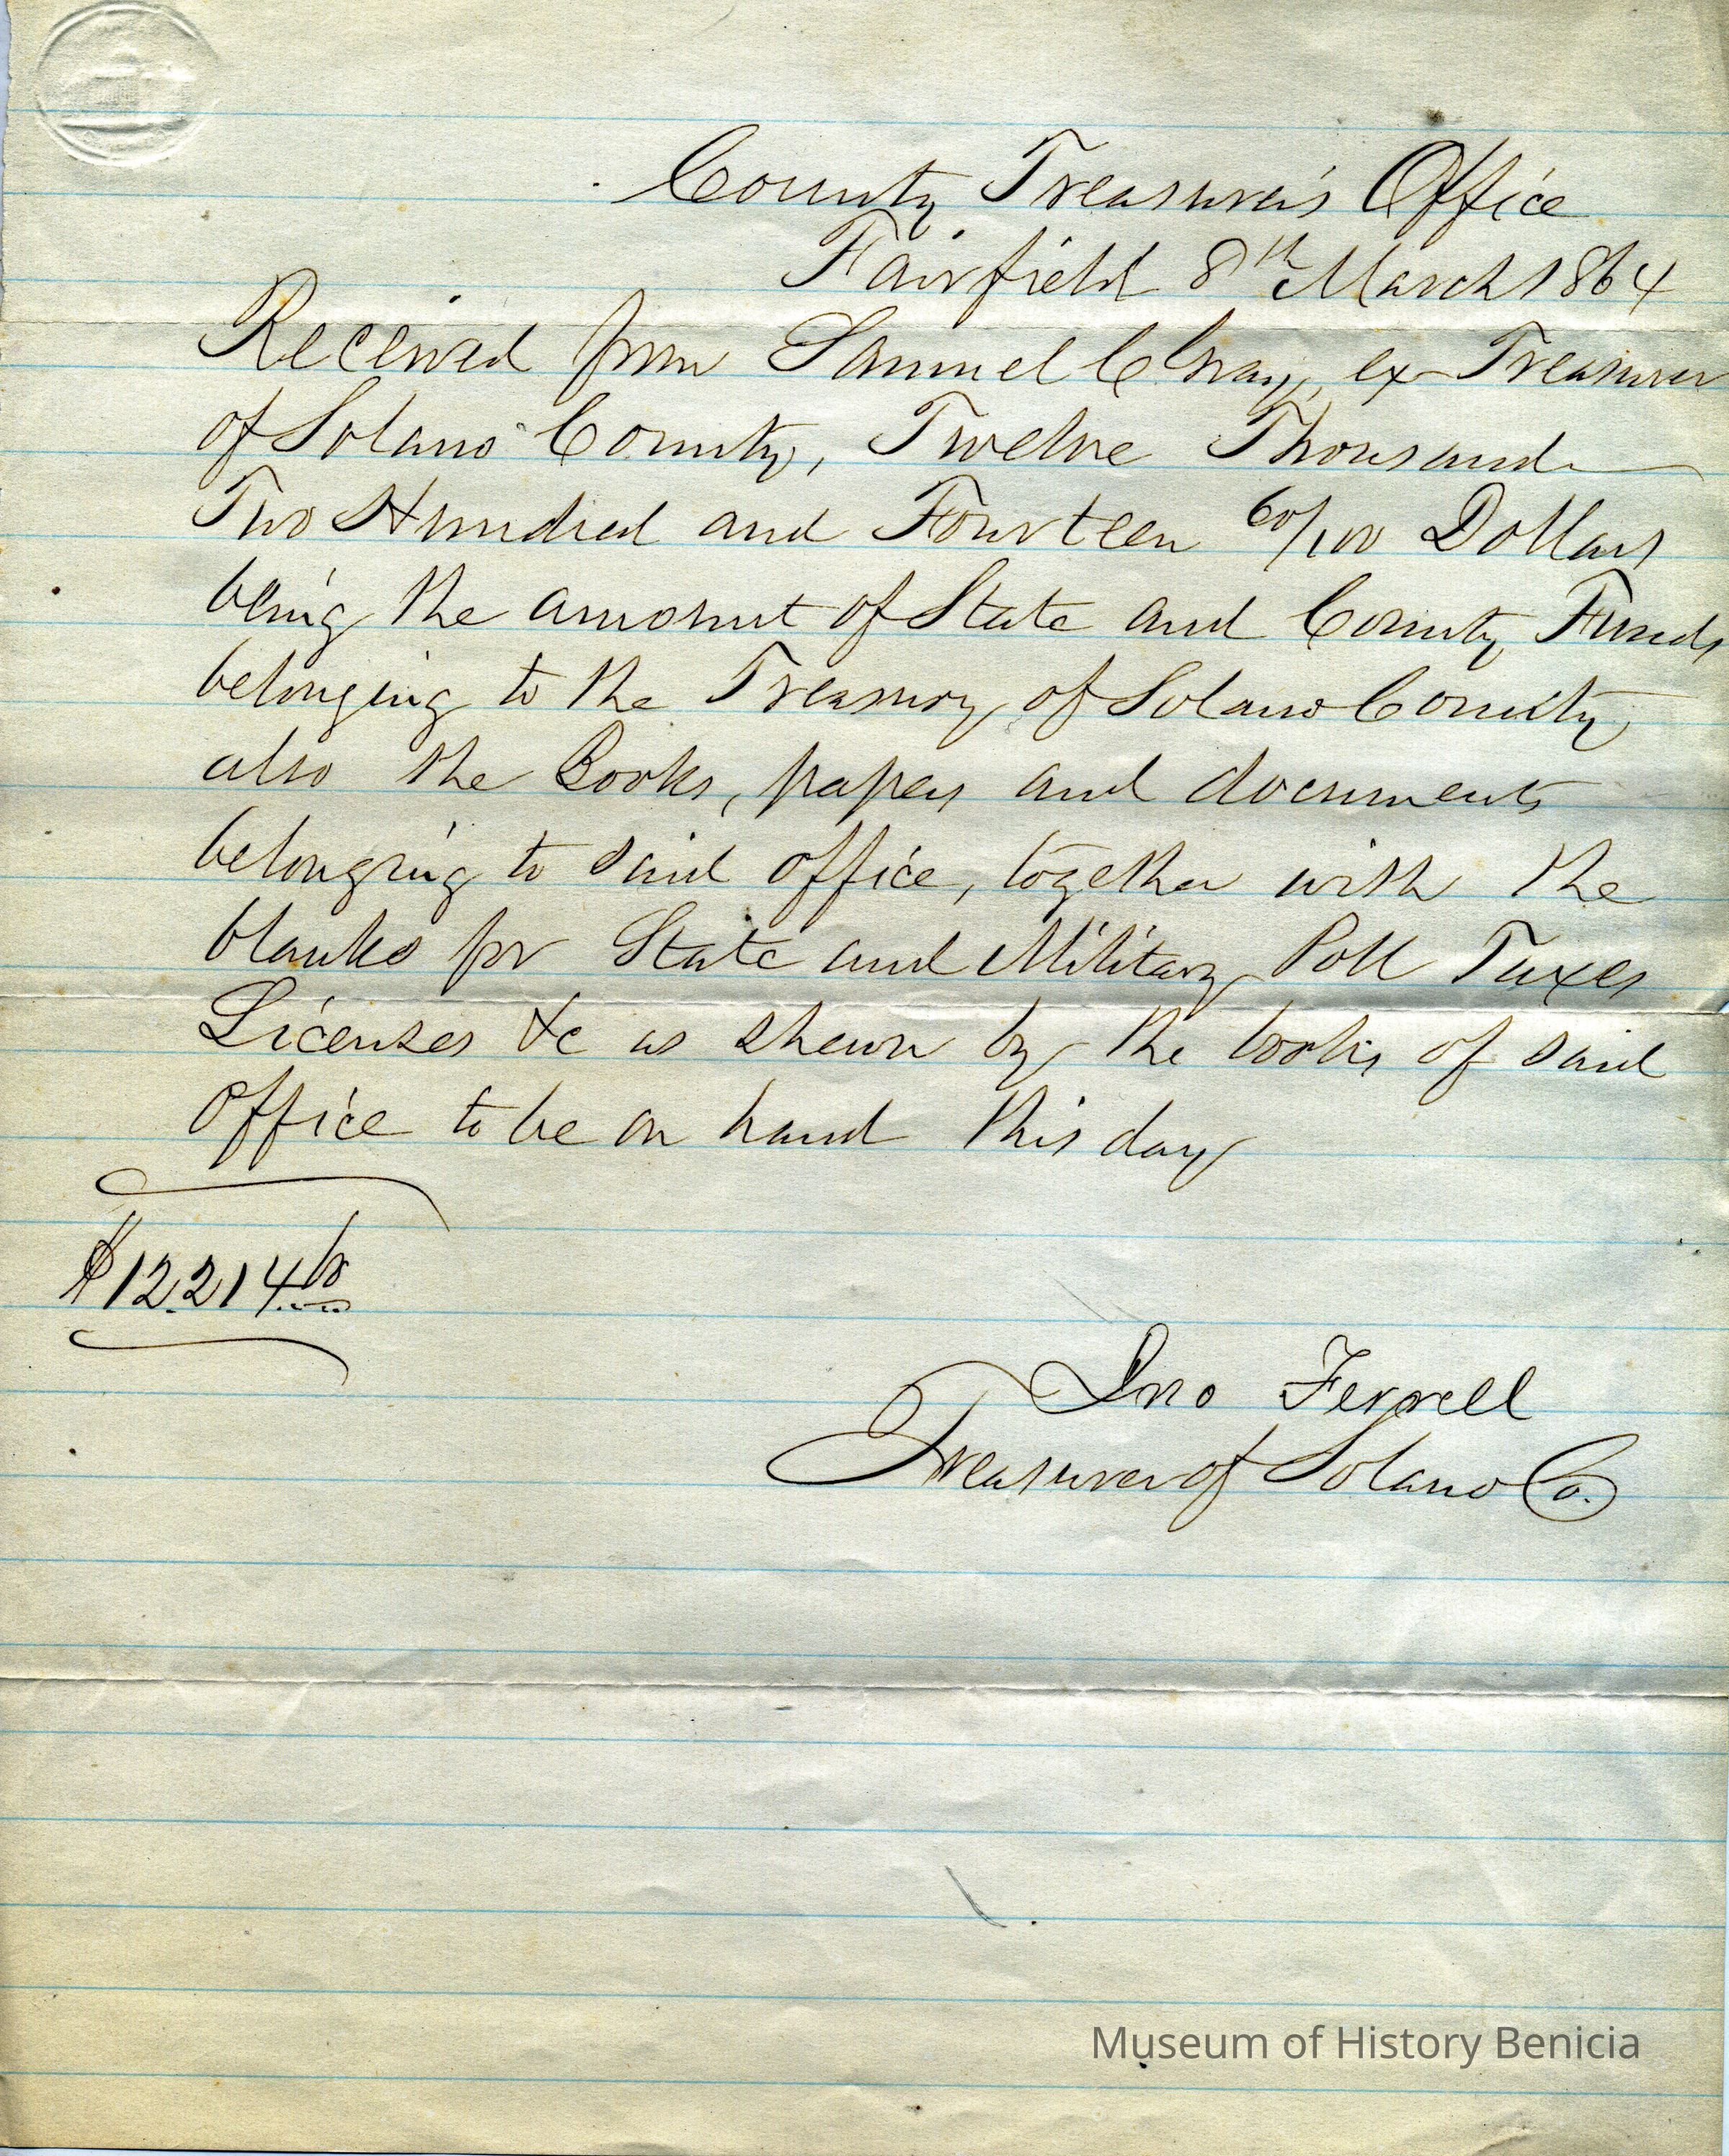 County Treasurer's Office
Fairfield 8th March 1864
Received from Samuel C Gray, ex-Treasurer
of Solano County, Twelve Thousand
Two Hundred and Fourteen 60/100 Dollars
being the amount of State and County Funds
belonging to the Treasury of Solano County
also the Books, papers and documents
belonging to said office, together with the
blanks for State and Military Poll Taxes
Licenses &c as shewn by the books of said
Office to be on hand this day
$12.214.60
Jno Ferrell
Treasurer of Solano Co.
Museum of History Benicia